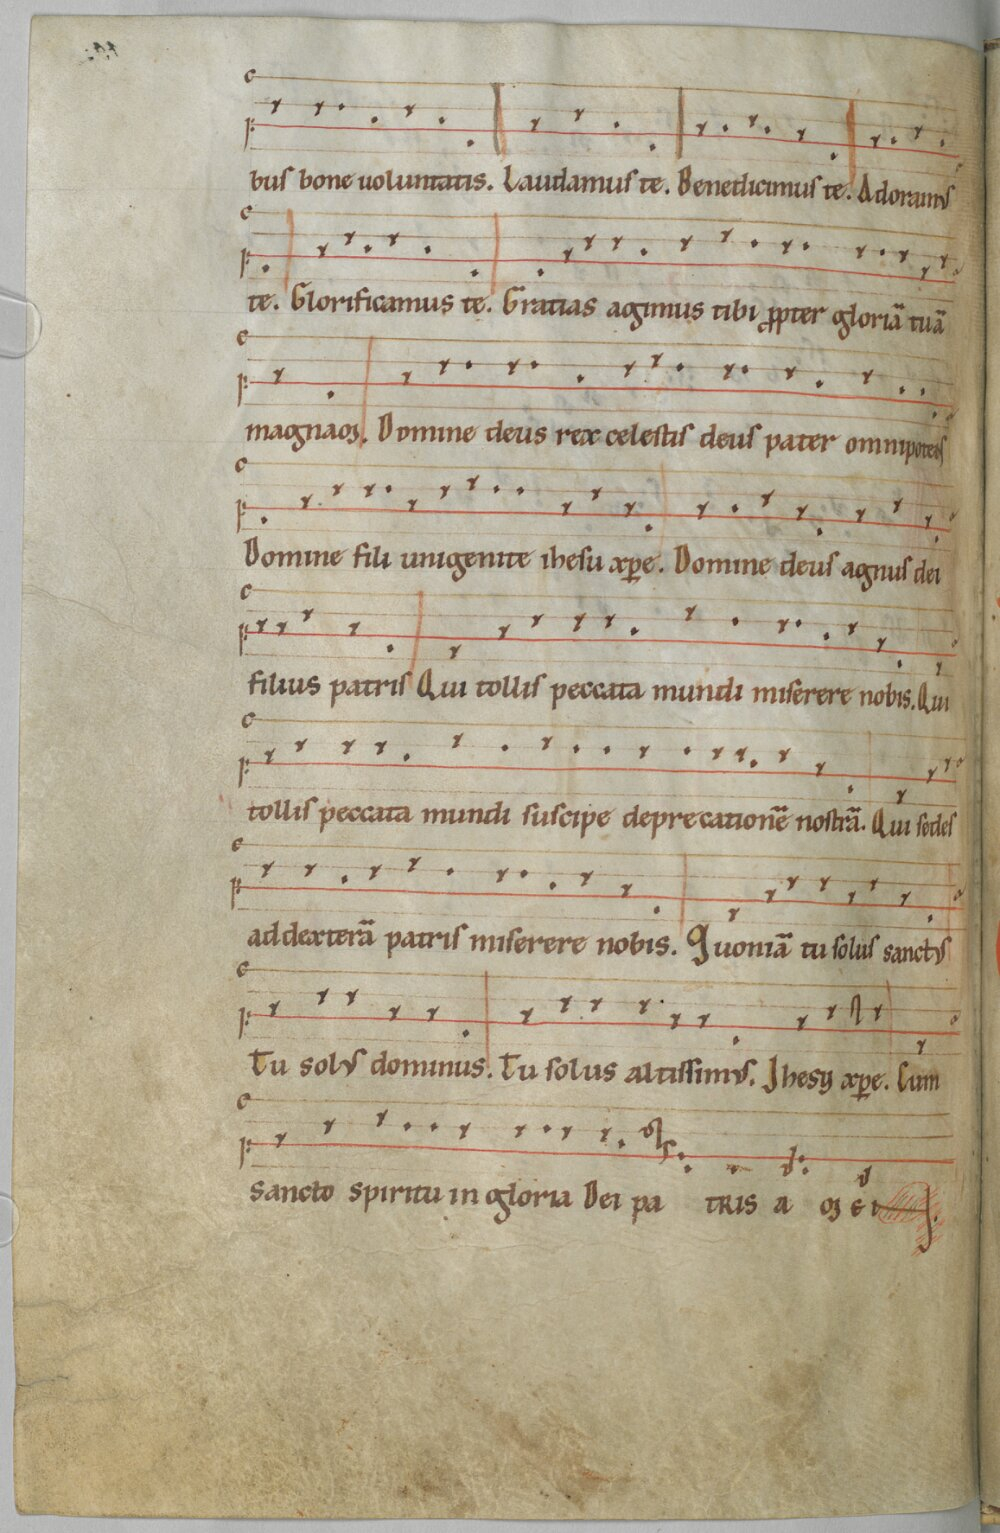 bus bone uoluntatis. Laudamus te. Benedicimus te. Adoramus
te. Glorificamus te. Gratias agimus tibi ꝓpter gloriā tuā
magnaꝫ. Domine deus rex celestis deus pater omnipotens
Domine fili unigenite ihesu xp̄e. Domine deus agnus dei
filius patris Qui tollis peccata mundi miserere nobis. Qui
tollis peccata mundi suscipe deprecationē nostrā. Qui sedes
ad dexterā patris miserere nobis. Quoniā tu solus sanctꝰ
Tu solꝰ dominus. Tu solus altissimꝰ. Jhesu xp̄e. Cum
sancto spiritu in gloria Dei pa tris a